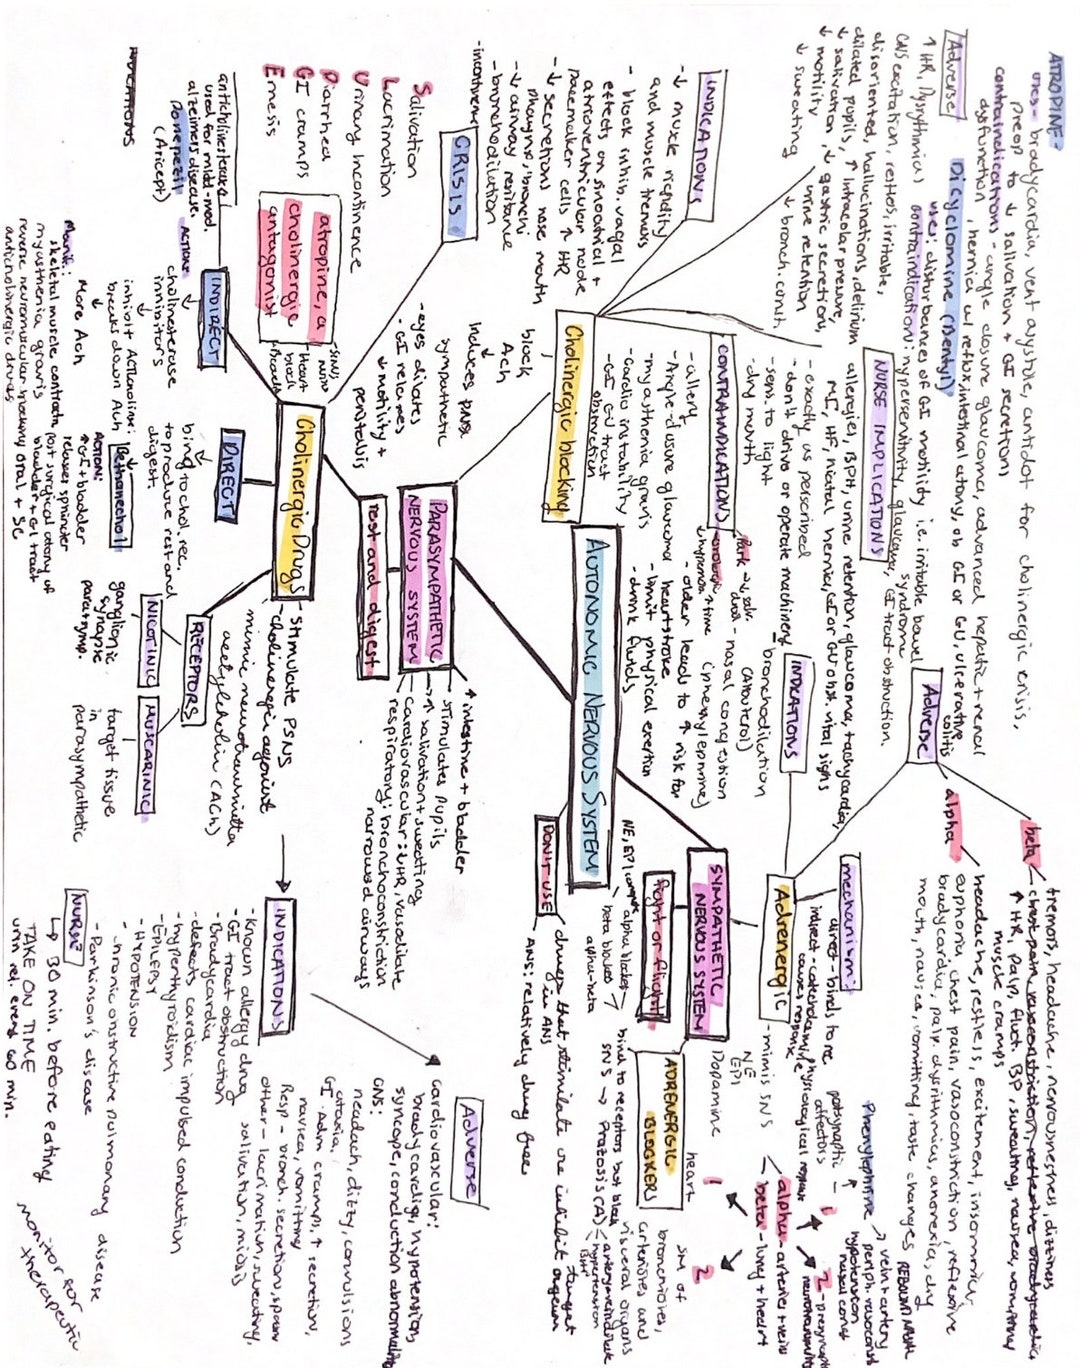 ATROPINE-
uses- bradycardia, vent. asystole, antidot for cholinergic crisis,
preop to ↓ salivation + GI secretions
contraindications - angle closure glaucoma, advanced hepatic + renal
dysfunction, hernia w/ reflux, intestinal atony, ob GI or GU, ulcerative
colitis
Dicyclomine (Bentyl)
uses: disturbances of GI motility i.e. irritable bowel
syndrome
contraindication: hypersensitivity, glaucoma, GI tract obstruction
Adverse
↑ HR, Dysrythmias
CNS excitation, restless, irritable,
disoriented, hallucinations, delirium
dilated pupils, ↑ intraocular pressure,
↓ salivation, ↓ gastric secretions,
↓ motility urine retention
↓ sweating ↓ bronch. const
NURSE IMPLICATIONS
allergies, BPH, urine retention, glaucoma, tachycardia,
MI, HF, hiatal hernia, GI or GU obst. vital signs
- exactly as perscribed
- don't drive or operate machinery
- sens. to light
- dry mouth
INDICATIONS
- ↓ muscle rigidity
and muscle tremors
- block inhib. vagal
effects on sinoatrial +
atrioventricular node
pacemaker cells ↑ HR
- ↓ secretions nose mouth
pharynx, bronchi
- ↓ airway resistance
- bronchodilution
- incontinence
CONTRAINDICATIONS
- allergy
- Angle-closure glaucoma
- myasthenia gravis
- Cardio instability
- GI GU tract
obstruction
- older lead to ↑ risk for
heartstroke
- limit physical exertion
- drink fluids
Cholinergic blocking
block
Ach
↓
induces
sympathetic
- eyes dilates
- GI relaxes
↓ motility +
peristalsis
CRISIS
Salivation
Lacrimation
Urinary Incontinence
Diarrhea
GI cramps
Emesis
atropine, a
cholinergic
antagonist
Heart
block
AUTONOMIC NERVOUS SYSTEM
PARASYMPATHETIC
NERVOUS SYSTEM
rest and digest
↑ intestine + bladder
stimulates pupils
→ ↑ salivation + sweating
cardiovascular: ↓ HR, vasodilate
respiratory: bronchoconstriction
narrowed airways
Cholinergic Drugs
- stimulate PSNS
- cholinergic agonist
mimic neurotransmitter
acetylcholin (ACh)
INDIRECT
ACTION:
↓
cholinesterase
inhibitors
↓
inhibit ACTcholines:
breaks down Ach
↓
More Ach
anticholinesterase
used for mild-mod.
alzeimers disease.
Donepezil
(Aricept)
skeletal muscle contracts,
myasthenia gravis
reverse neuromuscular blocking
anticholinergic drugs
DIRECT
bing to chol. rec.
to produce rest and
digest.
Bethanechol
ACTION:
↑ GI + bladder
relaxes sphincter
post surgical atony of
bladder + GI tract
oral + SC
RECEPTORS
NICOTINIC
ganglionic
synapse
parasymp.
MUSCARINIC
target tissue
in
parasympathetic
INDICATIONS
- Known allergy drug
- GI tract obstruction
- Bradycardia
- defects cardiac impulsed conduction
- hyperthyroidism
- EPILEPSY
- HYPOTENSION
- chronic onstructive pulmonary disease
- Parkinson's disease
NURSE
↳ 30 min. before eating
TAKE ON TIME
60 min.
monitor for
therapeutic
Adverse
cardiovascular:
bradycardia, hypotension,
syncope, conduction abnormality
CNS:
headach, dizzy, convulsions
ataxia
GI - Adm cramps, ↑ secretion,
nausea, vomitting
Resp - bronch. secretions, spasm
other - lacrimation, sweating,
salivation, miosis
DON'T USE
drugs that stimulate or inhibit target organs
in ANS
ANS: relatively drug free
SYMPATHETIC
NERVOUS SYSTEM
fight or flight
Adrenergic
- mimis SNS
NE
EPI
Dopamine
INDICATIONS
bronchodilution
(albuterol)
- nasal congestion
(phenylephrine)
mechanism:
direct - binds to re
indirect - catecholamine
causes response
physiological response
postsynaptic
effectors
Phenylephrine
vein + artery
periph. vasoconst
hypotension
nasal cong
alpha - arteries + vein
beta - lung + heart
1
heart
2
SM of
bronchioles,
arterioles and
visceral organs
Adverse
alpha
headache, restless, excitement, insomnia,
euphoria, chest pain, vasoconstriction, reflexive
bradycardia, palp. dysrithmics, anorexia, dry
mouth, nausea, vomitting, taste changes
beta
tremors, headache, nervousness, dizziness
↑ HR, palp, fluct. BP, sweating, nausea, vomiting
muscle cramps
ADRENERGIC
BLOCKERS
bind to receptors but block
SNS
alpha blocker
beta blocked
alpha-beta
hypertension